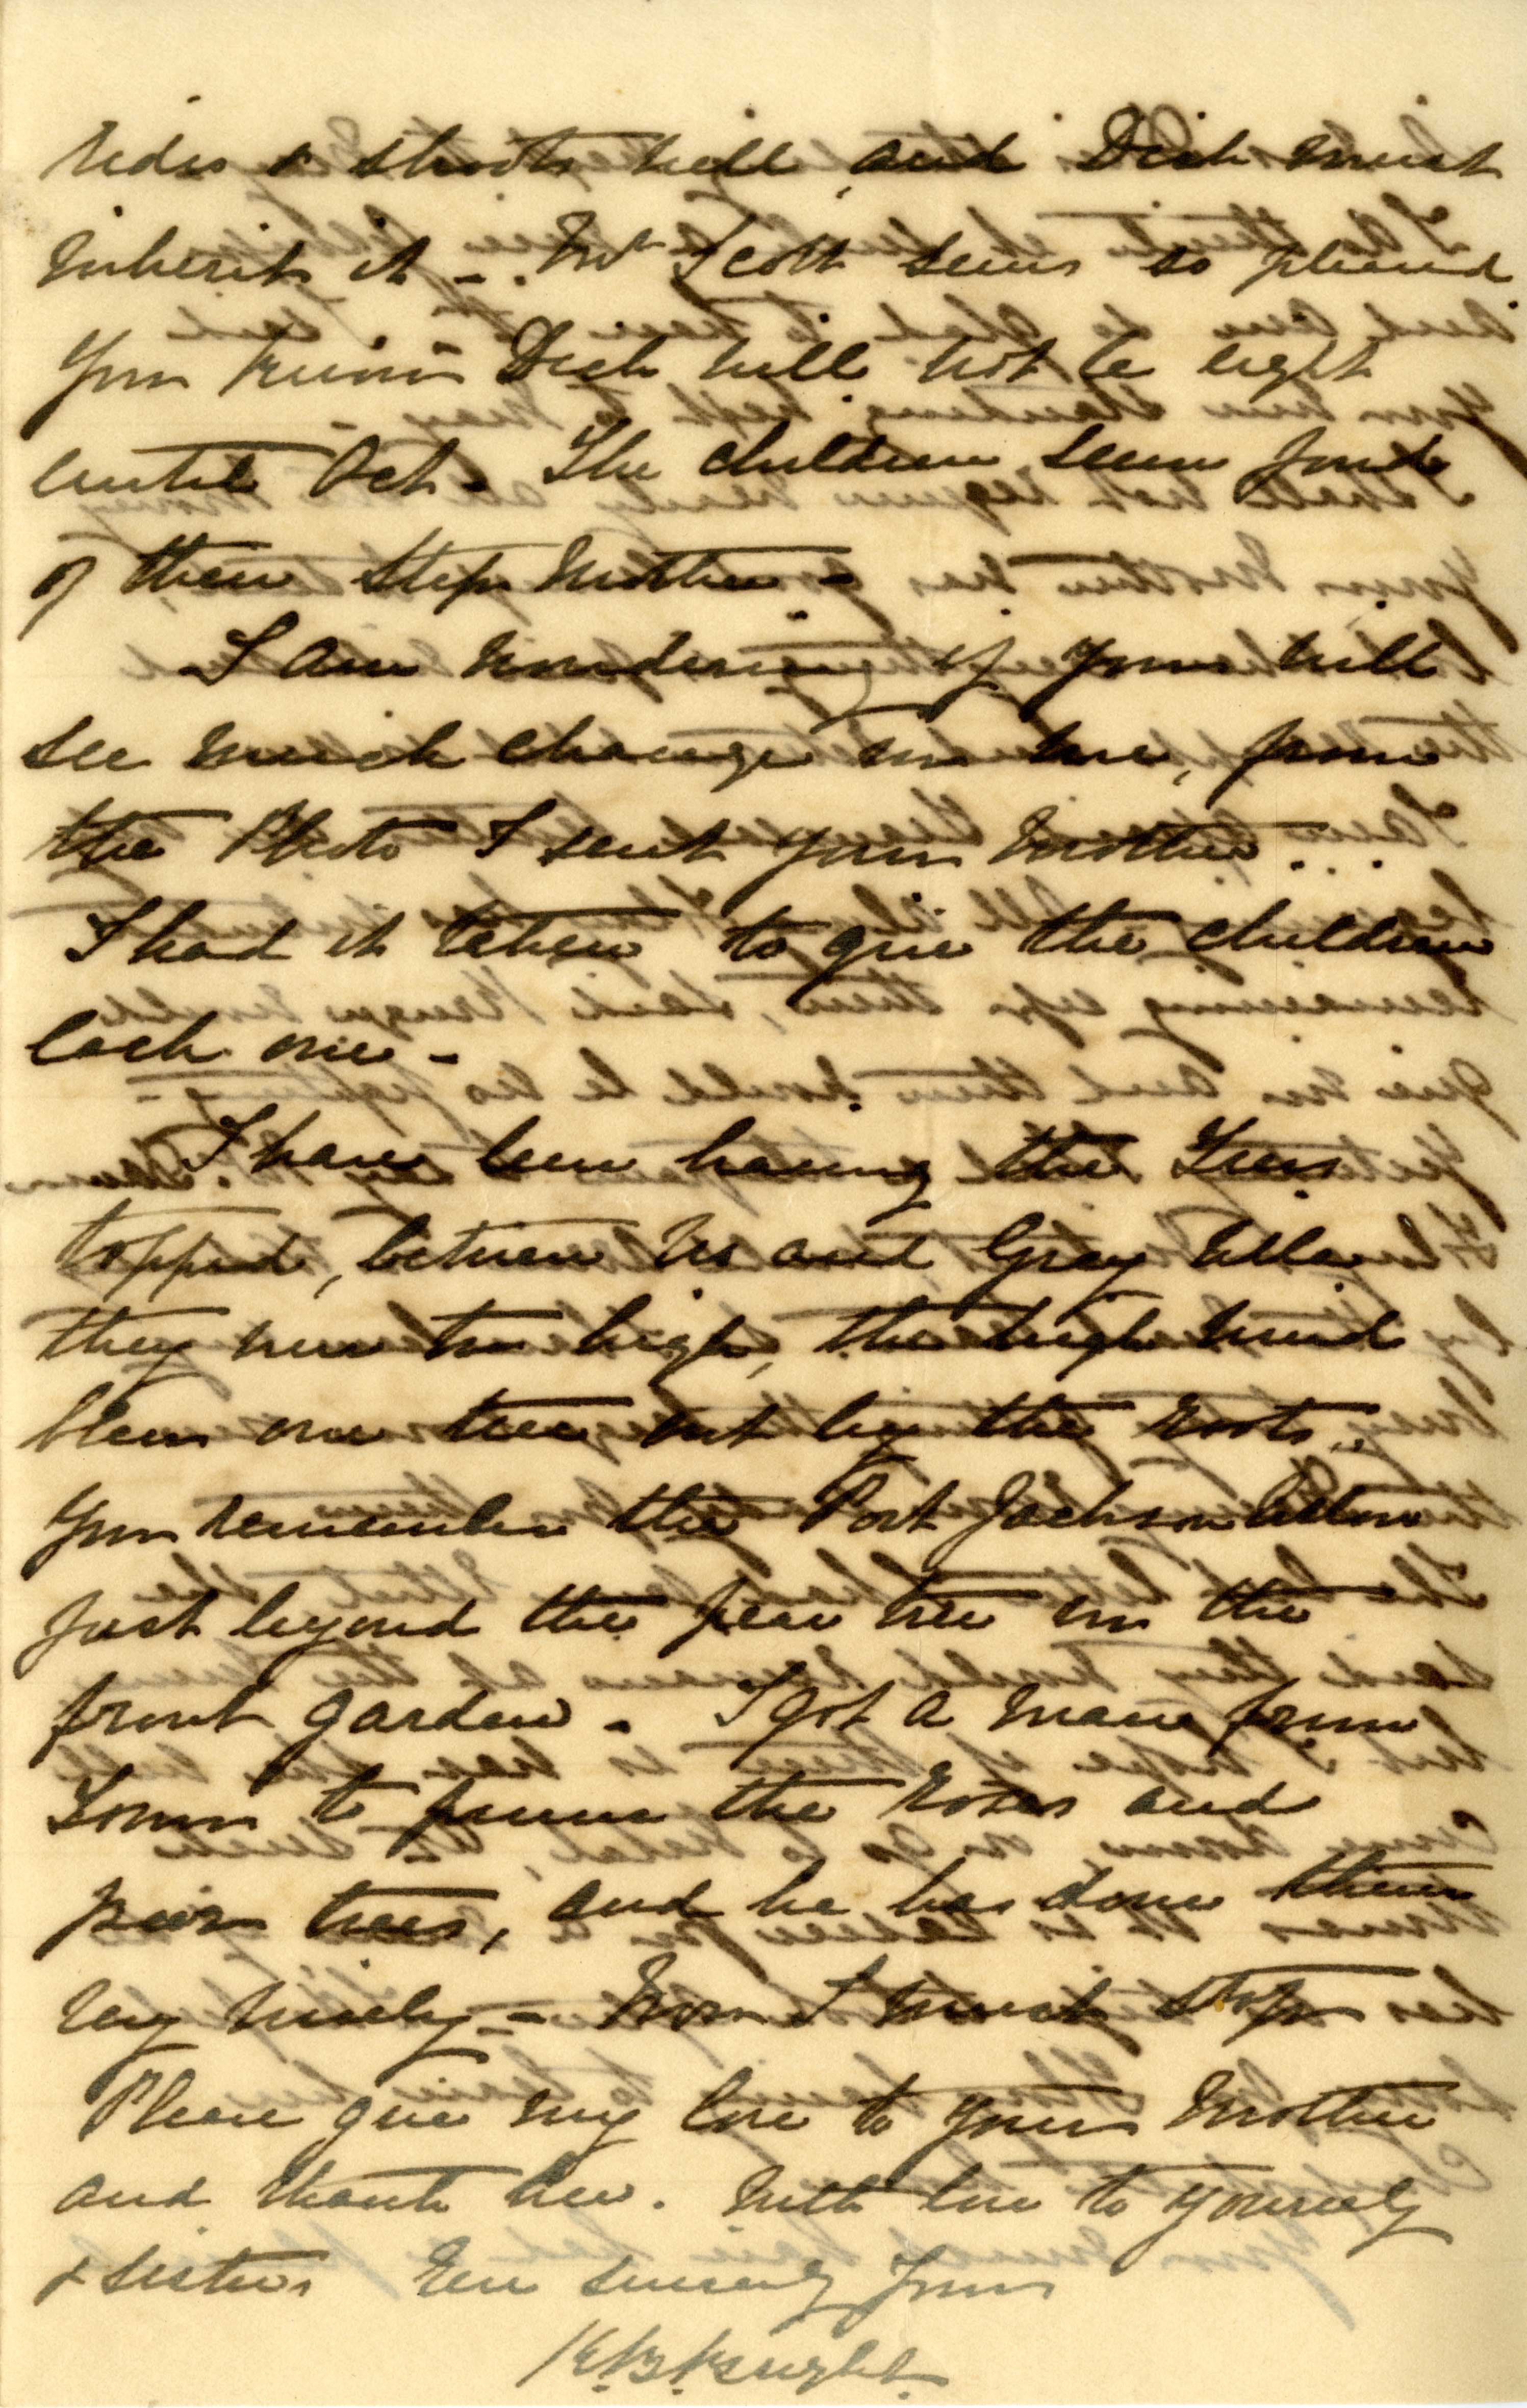 rides & shoots well, and Dick must
inherit it - Mr Scott seems so pleased
You know Dick will not be eight
until Oct. The children seem fond
of their Step Mother -
I am wondering if you will
see much change in me, from
the Photo I sent your Mother.
I had it taken to give the children
each one -
I have been having the Trees
topped, between us and Gray Villa
they were too high, the high wind
blew one tree out by the roots.
You remember the Port Jackson Willow
just beyond the pear tree in the
front garden. I got a man from
Town to prune the Roses and
pear trees, and he has done them
very nicely - Now I must stop
Please give my love to your Mother
and thank her. With love to yourself
& sisters Ever sincerely Yours
Knight.